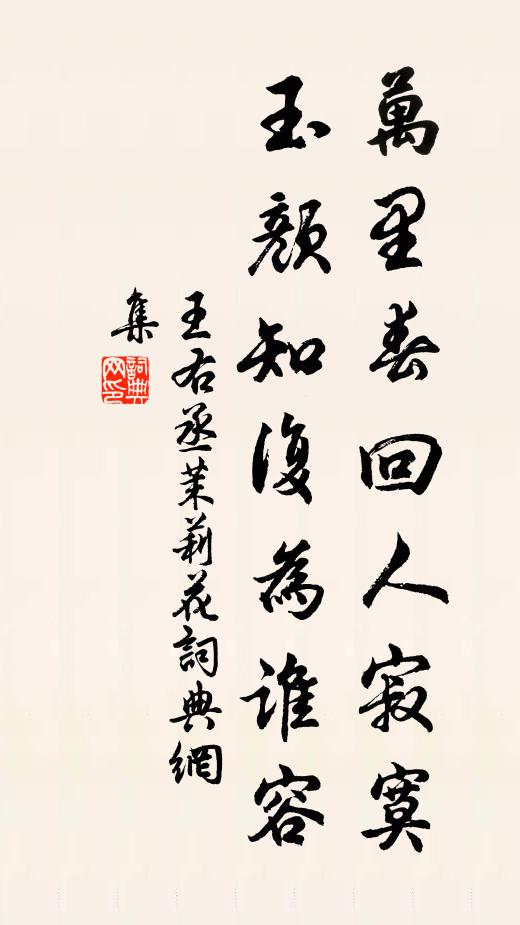 萬里春回人寂寞
玉顏知復為誰容
王右丞茉莉花詞典網
集
詞典
网印